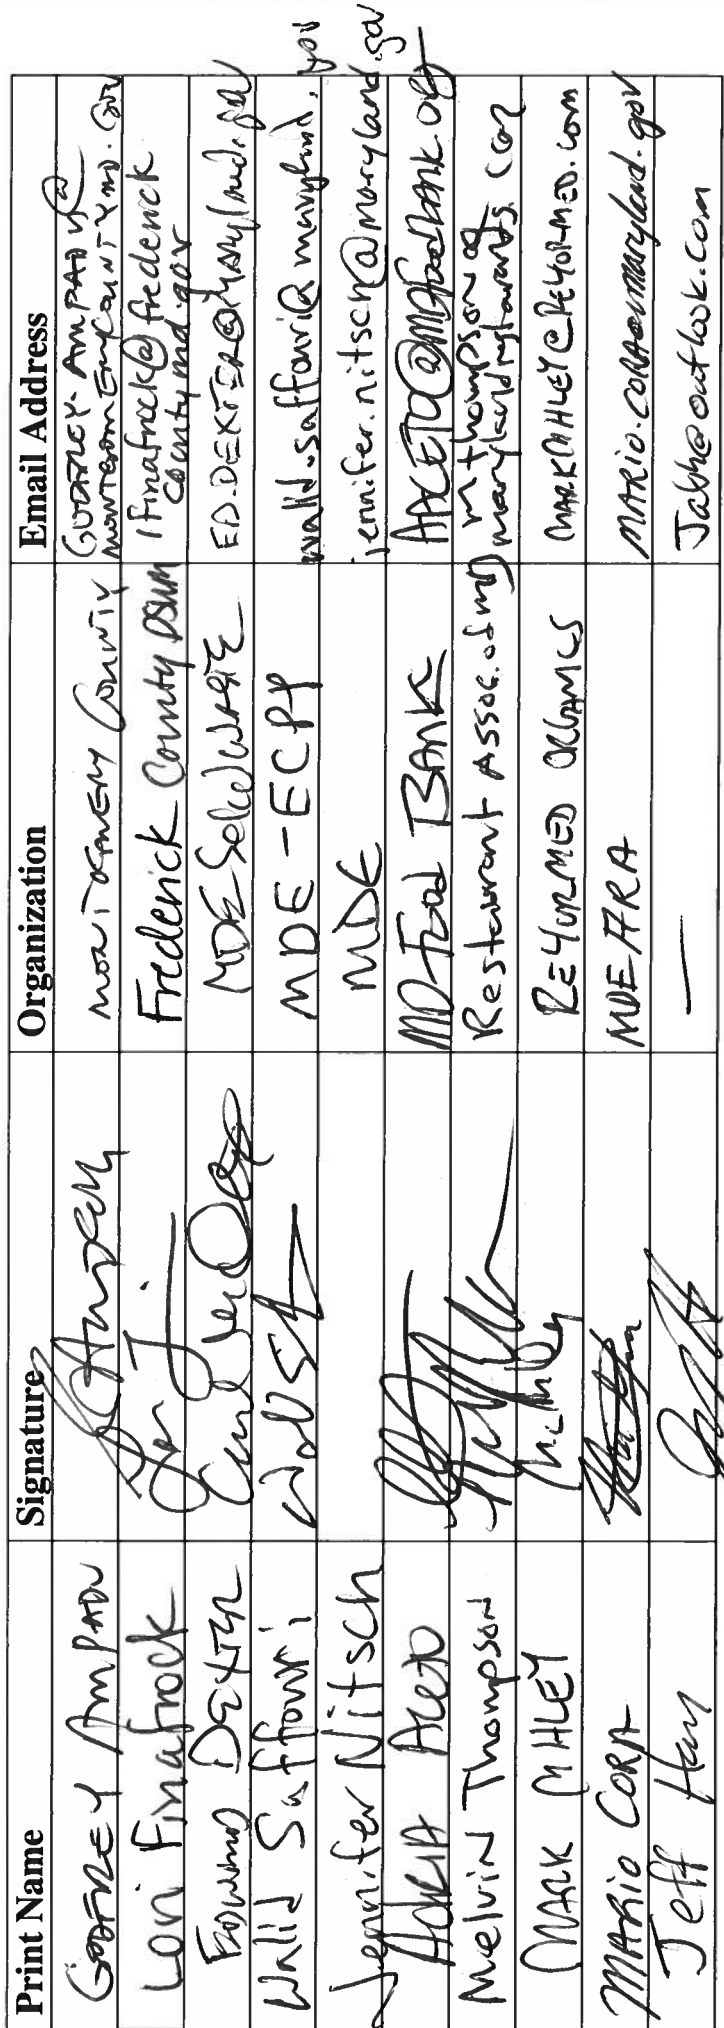 Print Name Signature Organization Email Address
GODFREY AMPADU MONTGOMERY COUNTY GODFREY.AMPADU@
MONTGOMERYCOUNTYMD.GOV
Lori Finafrock Frederick County DSWM lFinafrock@frederick
countymd.gov
EDWARD DEXTER MDE Solid WASTE ED.DEXTER@maryland.gov
Walid Saffouri MDE-ECPP walid.saffouri@maryland.gov
Jennifer Nitsch MDE jennifer.nitsch@maryland.gov
Aceto MD Food BANK @mdfoodbank.org
Melvin Thompson Restaurant Assoc. of MD mthompson@
.com
MARK MAHLEY ORGANICS
MARIO CORA MDE MARIO.CORA@maryland.gov
Jeff — @outlook.com